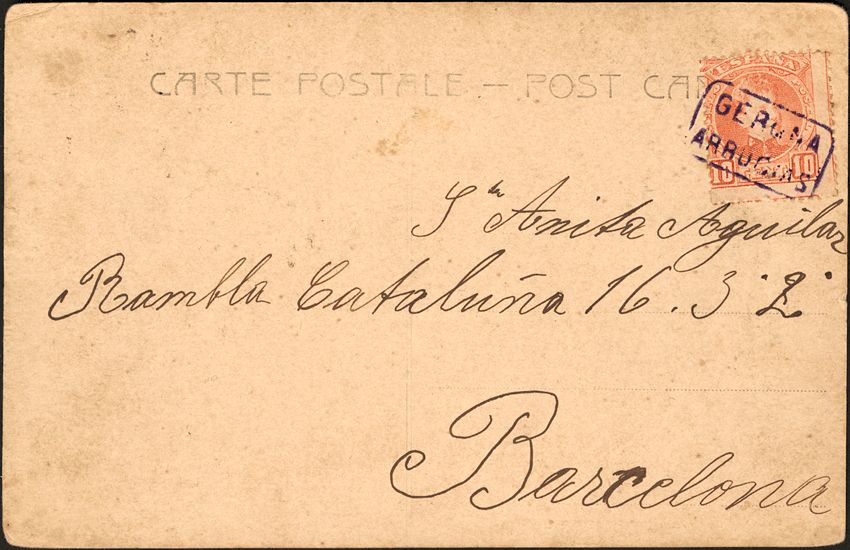 CARTE POSTALE — POST CAR
ESPAÑA
GERONA
10 10
Sta Anita Aguilar
Rambla Cataluña 16. 3º 2º
Barcelona